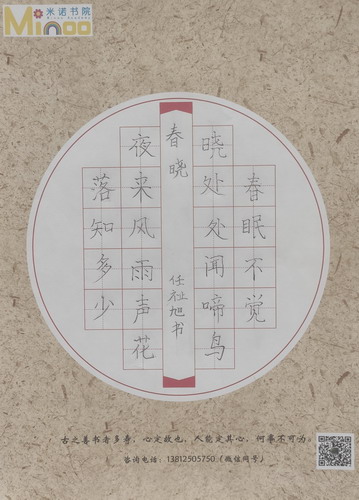 Minoo
米诺书院
春眠不觉
晓处处闻啼鸟
春晓
任祉旭书
夜来风雨声花
落知多少
古之善书者多寿，心定故也，人能定其心，何事不可为。
咨询电话：13812505750（微信同号）